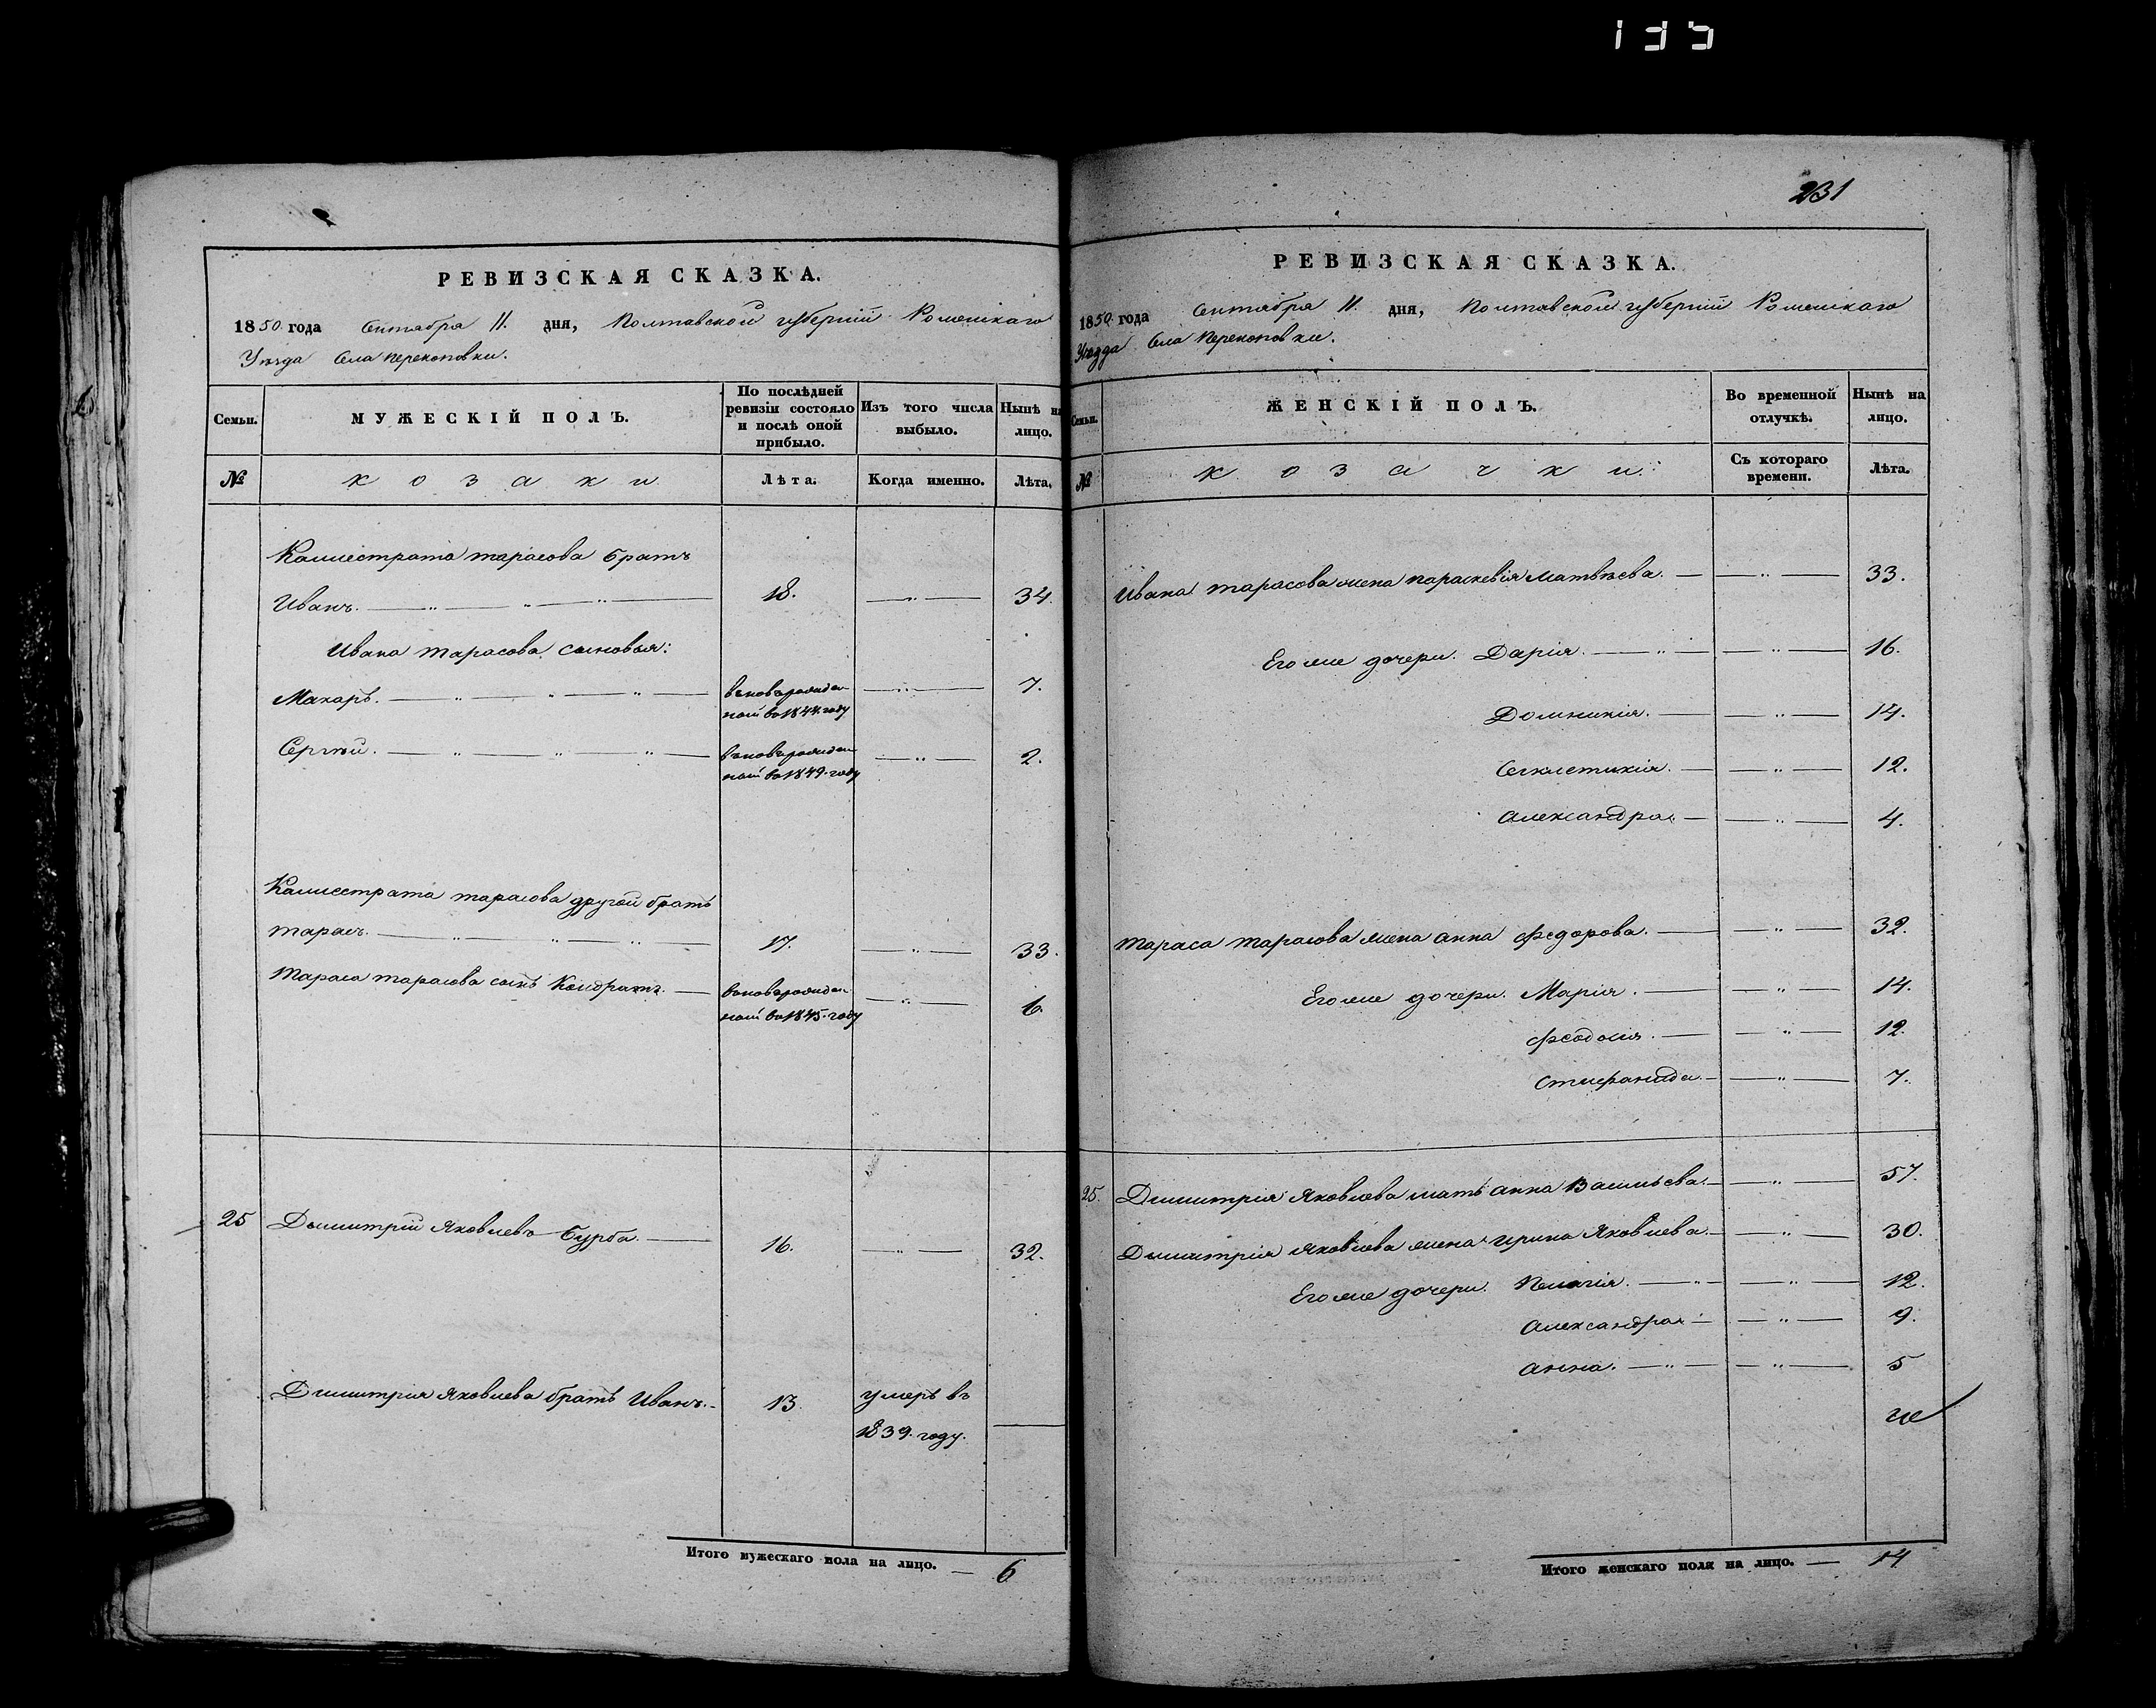 135
231
РЕВИЗСКАЯ СКАЗКА.
1850 года Сентября 11. дня, Полтавской губерніи Роменскаго
Уѣзда Села Перекоповки.
Семьи. МУЖЕСКІЙ ПОЛЪ. По послѣдней ревизіи состояло и послѣ оной прибыло. Изъ того числа выбыло. Нынѣ на лицо.
№ козаки Лѣта. Когда именно. Лѣта.
Каллистрата Тарасова братъ
Иванъ. 18. 34.
Ивана Тарасова сыновья:
Макаръ. 7.
ной въ 1844. году
Сергѣй. 2.
ной въ 1849. году
Каллистрата Тарасова другой братъ
Тарасъ. 17. 33.
Тараса Тарасова сынъ Кондратъ. 6.
ной въ 1845. году
25 Димитрій Яковлевъ Бурба. 16. 32.
Димитрія Яковлева братъ Иванъ. 13. умеръ въ
1839. году.
Итого мужескаго пола на лицо. — 6
РЕВИЗСКАЯ СКАЗКА.
1850 года Сентября 11. дня, Полтавской губерніи Роменскаго
Уѣзда Села Перекоповки.
Семьи. ЖЕНСКІЙ ПОЛЪ. Во временной отлучкѣ. Нынѣ на лицо.
№ козачки Съ котораго времени. Лѣта.
Ивана Тарасова жена Параскевія Матвѣева. 33.
Его же дочери. Дарія. 16.
Домникія. 14.
12.
Александра. 4.
Тараса Тарасова жена Анна Федорова. 32.
Его же дочери. Марія. 14.
Феодосія. 12.
Стефанида. 7.
25. Димитрія Яковлева мать Анна Васильева. 57.
Димитрія Яковлева жена Ирина Яковлева. 30.
Его же дочери. Пелагія. 12.
Александра. 9.
Анна. 5
Итого женскаго пола на лицо. — 14